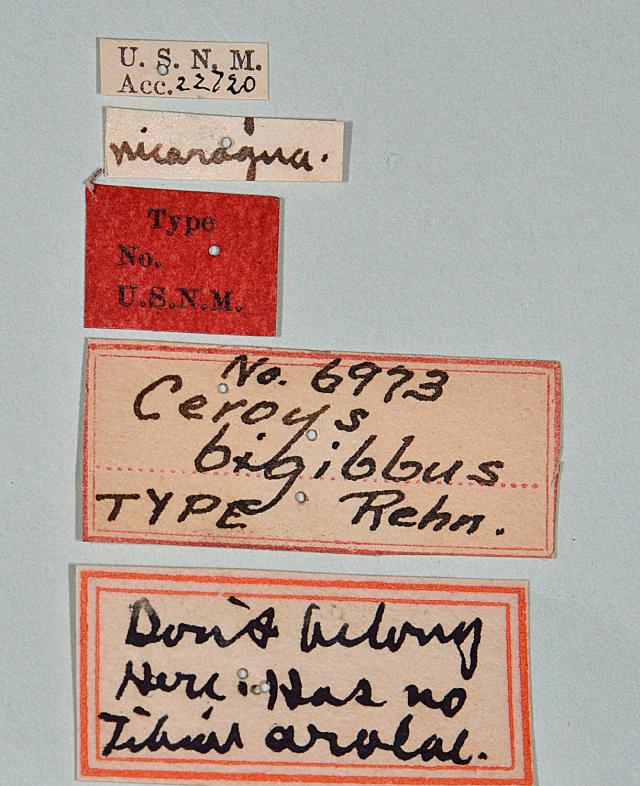 U. S. N. M.
Acc. 22720
nicaragua.
Type
No.
U.S.N.M.
No. 6973
Ceroys
bigibbus
TYPE Rehn.
Don't belong
Here. Has no
Tibial arolae.